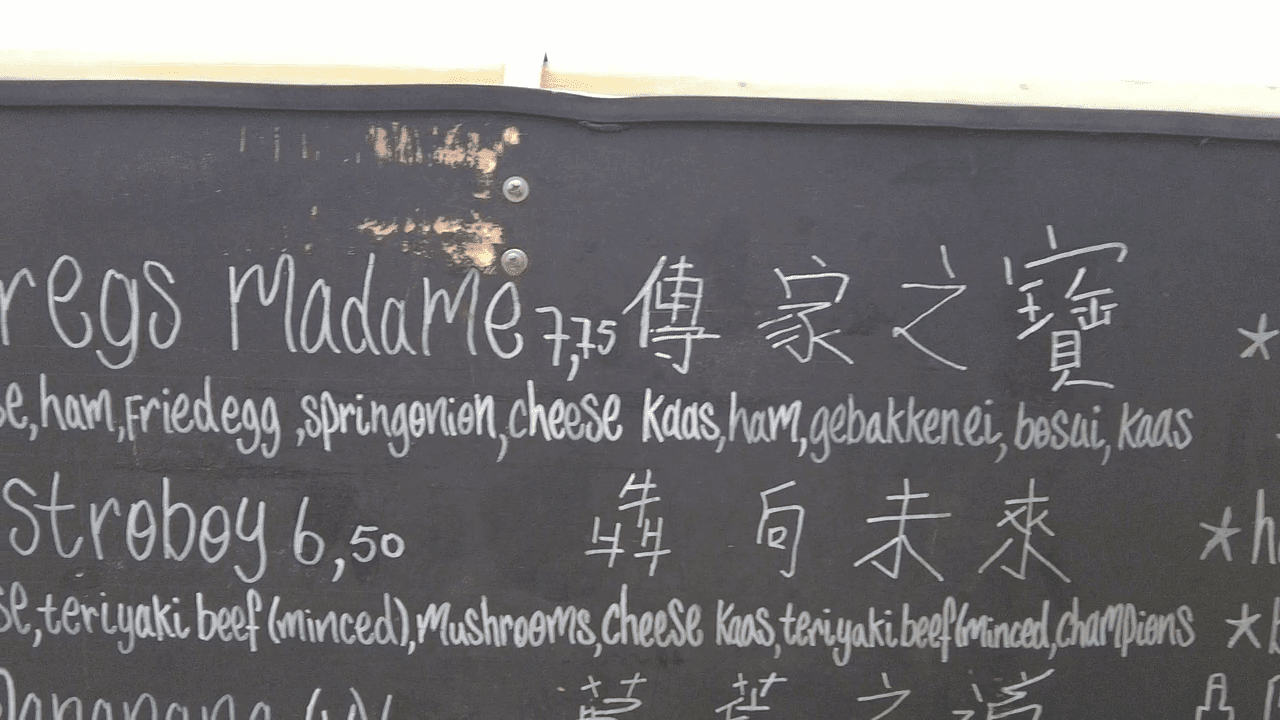 regs Madame 7,75 傳家之寶
se, ham, Fried egg, springonion, cheese Kaas, ham, gebakken ei, bosui, kaas
stroboy 6,50 犇向未來
se, teriyaki beef (minced), Mushrooms, cheese Kaas, teriyaki beef (minced, champions